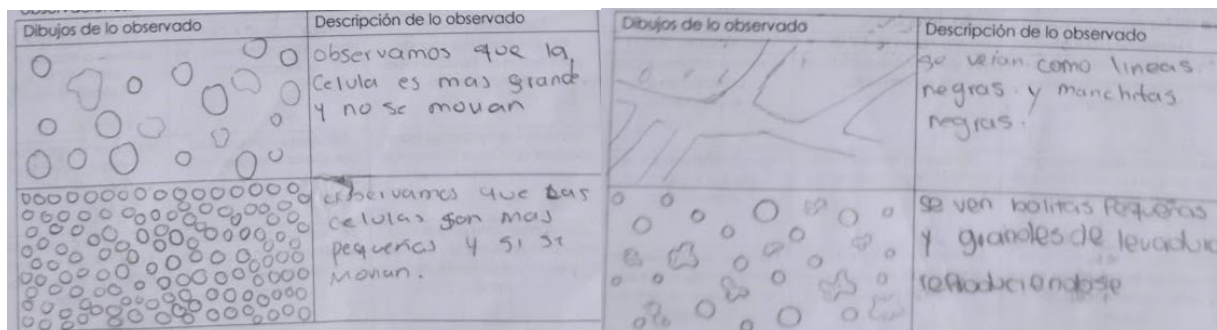 Dibujos de lo observado
Descripción de lo observado
observamos que la
celula es mas grande
y no se movian
observamos que las
celulas son mas
pequeñas y si se
movian.
Dibujos de lo observado
Descripción de lo observado
se veian como lineas
negras y manchitas
negras.
se ven bolitas pequeñas
y grandes de levadura
reproduciendose